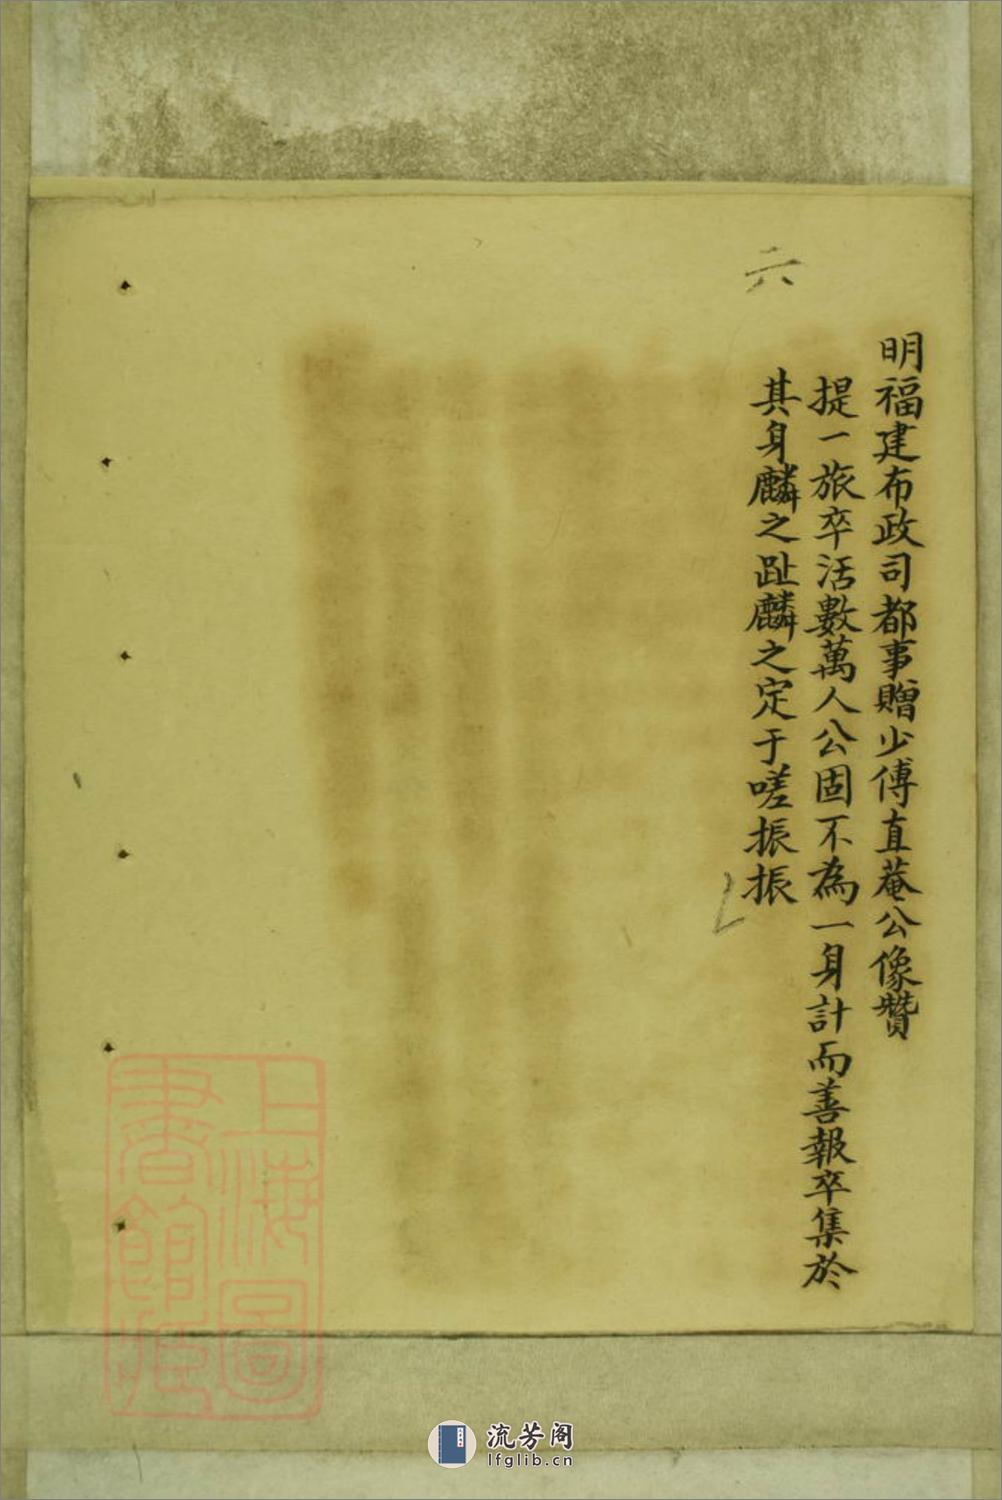 明福建布政司都事贈少傅直菴公像贊
提一旅卒活數萬人公固不為一身計而善報卒集於
其身麟之趾麟之定于嗟振振
六
上海圖
書館藏
流芳阁
lfglib.cn